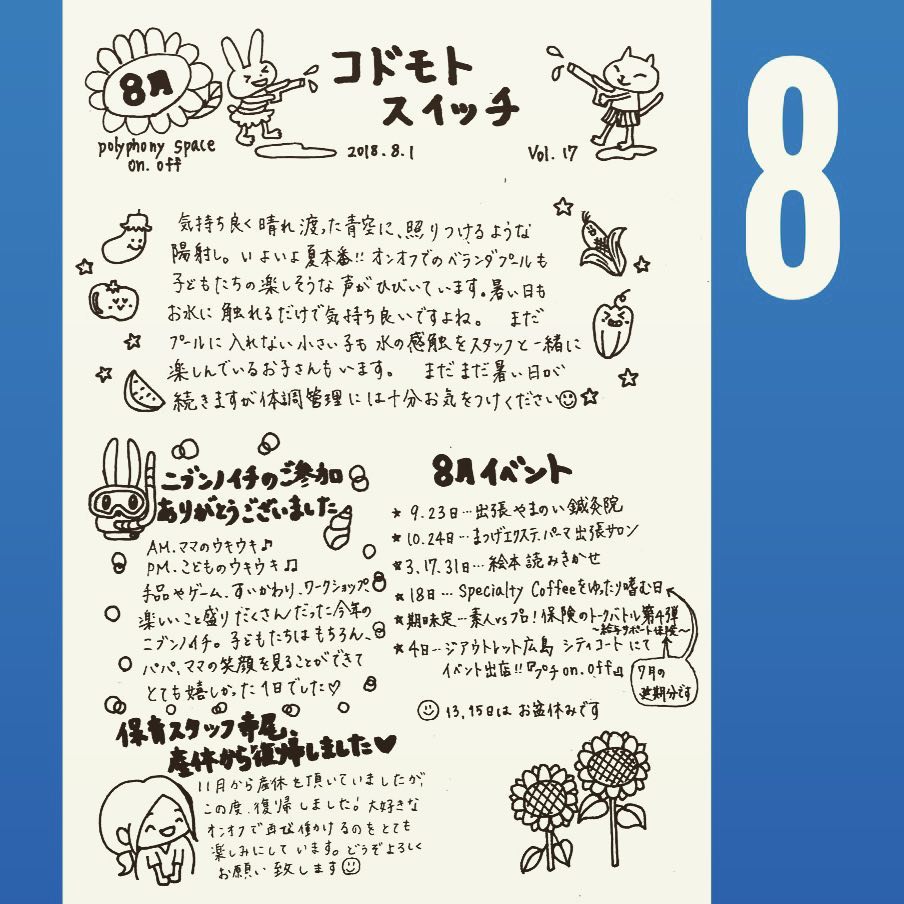 8月
コドモト
スイッチ
polyphony space
on. off
2018. 8. 1
Vol. 17
8
気持ち良く晴れ渡った青空に、照りつけるような
陽射し。いよいよ夏本番!! オンオフでのベランダプールも
子どもたちの楽しそうな声がひびいています。暑い日も
お水に触れるだけで気持ち良いですよね。 まだ
プールに入れない小さい子も水の感触をスタッフと一緒に
楽しんでいるお子さんもいます。 まだまだ暑い日が
続きますが体調管理には十分お気をつけください☺
ニブンノイチのご参加
ありがとうございました
AM. ママのウキウキ♪
PM. こどものウキウキ♫
手品やゲーム、すいかわり、ワークショップ
楽しいこと盛りだくさんだった今年の
ニブンノイチ。子どもたちはもちろん、
パパ、ママの笑顔を見ることができて
とても嬉しかった1日でした♡
8月イベント
★ 9. 23日…出張やまのい鍼灸院
★ 10. 24日…まつげエクステ、パーマ出張サロン
★ 3, 17. 31日…絵本読みきかせ
★ 18日…Specialty Coffeeをゆったり嗜む日
★ 期日未定…素人vsプロ!保険のトークバトル第4弾
〜給与サポート保険〜
★ 4日…ジアウトレット広島 シティコートにて
イベント出店!!『プチon.off』
7月の
延期分です
☺ 13, 15日はお盆休みです
保育スタッフ寺尾、
産休から復帰しました♥
11月から産休を頂いていましたが、
この度、復帰しました!大好きな
オンオフで再び働けるのをとても
楽しみにしています。どうぞよろしく
お願い致します☺